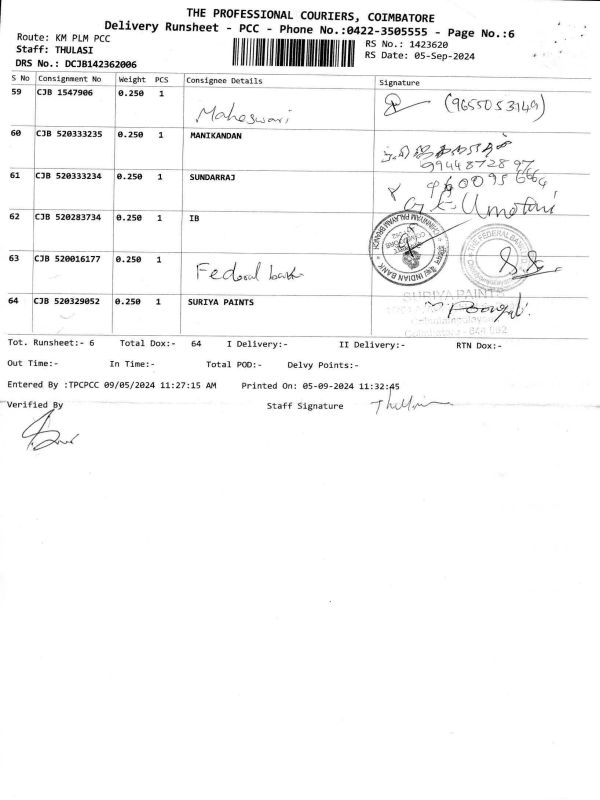 THE PROFESSIONAL COURIERS, COIMBATORE
Delivery Runsheet - PCC - Phone No.:0422-3505555 - Page No.:6
Route: KM PLM PCC
Staff: THULASI
DRS No.: DCJB142362006
RS No.: 1423620
RS Date: 05-Sep-2024
S No Consignment No Weight PCS Consignee Details Signature
59 CJB 1547906 0.250 1 Maheswari (9655053149)
60 CJB 520333235 0.250 1 MANIKANDAN
9944872897
61 CJB 520333234 0.250 1 SUNDARRAJ 9600956664
62 CJB 520283734 0.250 1 IB
INDIAN BANK
THE FEDERAL BANK
63 CJB 520016177 0.250 1 Federal bank
64 CJB 520329052 0.250 1 SURIYA PAINTS
SURIYA PAINTS
Tot. Runsheet:- 6 Total Dox:- 64 I Delivery:- II Delivery:- RTN Dox:-
Out Time:- In Time:- Total POD:- Delvy Points:-
Entered By :TPCPCC 09/05/2024 11:27:15 AM Printed On: 05-09-2024 11:32:45
Verified By Staff Signature